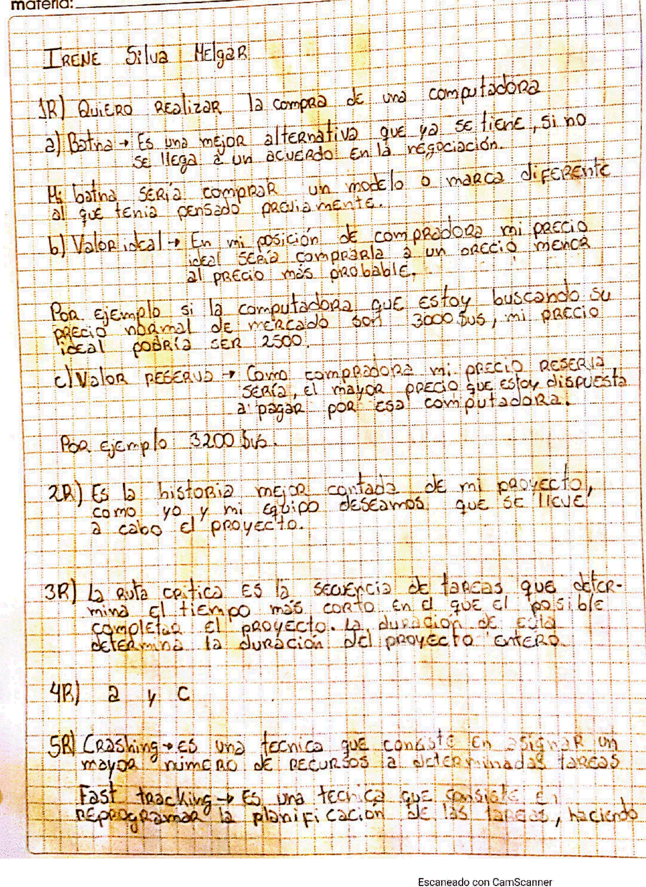 materia:
IRENE Silva Melgar
1R) Quiero realizar la compra de una computadora
a) Batna → Es una mejor alternativa que ya se tiene, si no
se llega a un acuerdo en la negociación.
Mi batna sería comprar un modelo o marca diferente
al que tenia pensado previamente.
b) Valor ideal → En mi posición de compradora mi precio
ideal sería comprarla a un precio menor
al precio más probable.
Por ejemplo si la computadora que estoy buscando su
precio normal de mercado son 3000 $us, mi precio
ideal podría ser 2500.
c) Valor reserva → Como compradora mi precio reserva
sería, el mayor precio que estoy dispuesta
a pagar por esa computadora.
Por ejemplo 3200 $us.
2R) Es la historia mejor contada de mi proyecto,
como yo y mi equipo deseamos que se lleve
a cabo el proyecto.
3R) La ruta critica es la secuencia de tareas que deter-
mina el tiempo más corto en el que el posible
completar el proyecto. La duración de esta
determina la duración del proyecto entero.
4R) a y c
5R) Crashing → es una tecnica que consiste en asignar un
mayor número de recursos a determinadas tareas
Fast tracking → Es una tecnica que consiste en
reprogramar la planificación de las tareas, haciendo
Escaneado con CamScanner